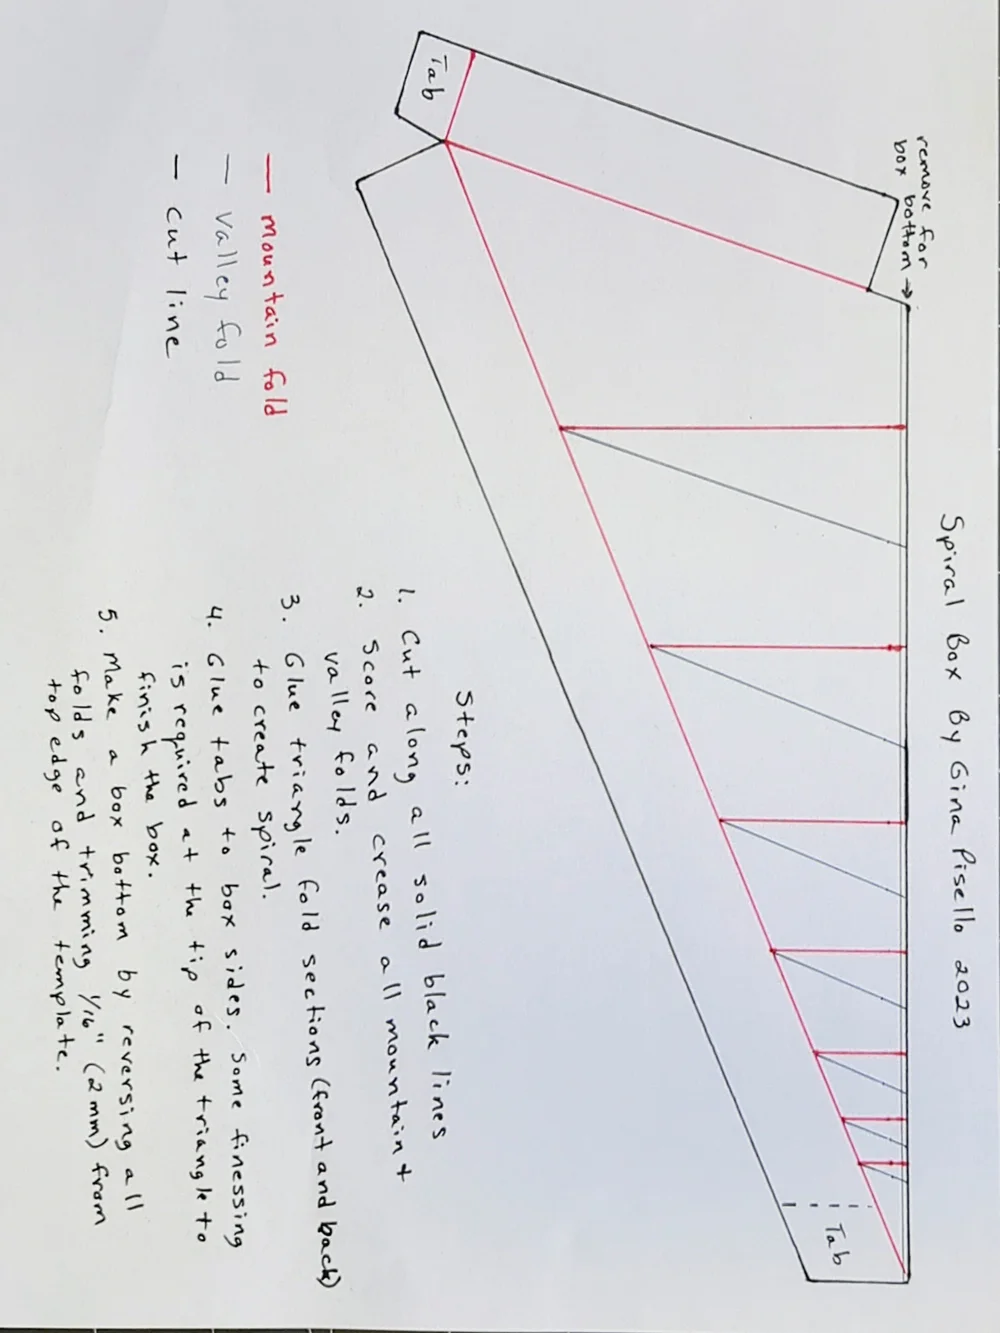 Spiral Box By Gina Pisello 2023
remove for
box bottom →
Tab
Tab
mountain fold
valley fold
cut line
Steps:
1. Cut along all solid black lines
2. Score and crease all mountain +
valley folds.
3. Glue triangle fold sections (front and back)
to create spiral.
4. Glue tabs to box sides. Some finessing
is required at the tip of the triangle to
finish the box.
5. Make a box bottom by reversing all
folds and trimming 1/16" (2mm) from
top edge of the template.